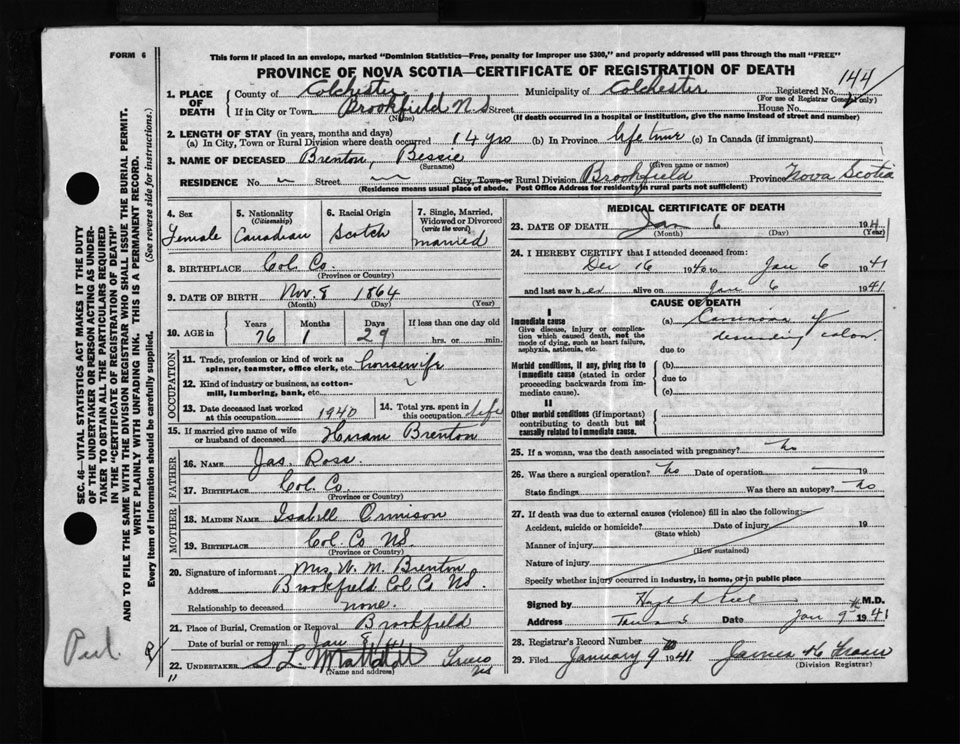 FORM 6
This form if placed in an envelope, marked "Dominion Statistics—Free, penalty for improper use $300," and properly addressed will pass through the mail "FREE"
PROVINCE OF NOVA SCOTIA—CERTIFICATE OF REGISTRATION OF DEATH
144
1. PLACE OF DEATH County of Colchester Municipality of Colchester Registered No.
(For use of Registrar General only)
If in City or Town Brookfield N.S Street House No.
(Name) (If death occurred in a hospital or institution, give the name instead of street and number)
2. LENGTH OF STAY (in years, months and days)
(a) In City, Town or Rural Division where death occurred 14 yrs (b) In Province life time (c) In Canada (if immigrant)
3. NAME OF DECEASED Brenton, Bessie
(Surname) (Given name or names)
RESIDENCE No. Street City, Town or Rural Division Brookfield Province Nova Scotia
(Residence means usual place of abode. Post Office Address for residents in rural parts not sufficient)
4. Sex Female
5. Nationality (Citizenship) Canadian
6. Racial Origin Scotch
7. Single, Married, Widowed or Divorced (write the word) married
8. BIRTHPLACE Col. Co.
(Province or Country)
9. DATE OF BIRTH Nov. 8 1864
(Month) (Day) (Year)
10. AGE in Years Months Days If less than one day old
76 1 29 hrs. or min.
OCCUPATION
11. Trade, profession or kind of work as spinner, teamster, office clerk, etc. housewife
12. Kind of industry or business, as cotton-mill, lumbering, bank, etc.
13. Date deceased last worked at this occupation 1940
14. Total yrs. spent in this occupation life
15. If married give name of wife or husband of deceased Hiram Brenton
FATHER
16. NAME Jas. Ross
17. BIRTHPLACE Col. Co.
(Province or Country)
MOTHER
18. MAIDEN NAME Isabell Ormison
19. BIRTHPLACE Col. Co NS
(Province or Country)
20. Signature of informant Mrs. W. M. Brenton
Address Brookfield Col. Co NS.
Relationship to deceased none.
21. Place of Burial, Cremation or Removal Brookfield
Date of burial or removal Jan 8/41
22. UNDERTAKER S L Truro NS
(Name and address)
MEDICAL CERTIFICATE OF DEATH
23. DATE OF DEATH Jan 6 1941
(Month) (Day) (Year)
24. I HEREBY CERTIFY that I attended deceased from:
Dec 16 1940 to Jan 6 1941
and last saw her alive on Jan 6 1941
CAUSE OF DEATH
I
Immediate cause
Give disease, injury or complication which caused death, not the mode of dying, such as heart failure, asphyxia, asthenia, etc.
(a) Carcinoma of
descending colon
due to
Morbid conditions, if any, giving rise to immediate cause (stated in order proceeding backwards from immediate cause).
(b)
due to
(c)
II
Other morbid conditions (if important) contributing to death but not causally related to immediate cause.
25. If a woman, was the death associated with pregnancy? No
26. Was there a surgical operation? No Date of operation 19
State findings Was there an autopsy? No
27. If death was due to external causes (violence) fill in also the following:
Accident, suicide or homicide? Date of injury 19
(State which)
Manner of injury
(How sustained)
Nature of injury
Specify whether injury occurred in industry, in home, or in public place
Signed by M.D.
Address Date Jan 9 1941
28. Registrar's Record Number
29. Filed January 9th 1941 James K Fraser
(Division Registrar)
SEC. 46—VITAL STATISTICS ACT MAKES IT THE DUTY
OF THE UNDERTAKER OR PERSON ACTING AS UNDER-
TAKER TO OBTAIN ALL THE PARTICULARS REQUIRED
IN THE "CERTIFICATE OF REGISTRATION OF DEATH"
AND TO FILE THE SAME WITH THE DIVISION REGISTRAR WHO SHALL ISSUE THE BURIAL PERMIT.
WRITE PLAINLY WITH UNFADING INK. THIS IS A PERMANENT RECORD.
Every item of information should be carefully supplied. (See reverse side for instructions.)